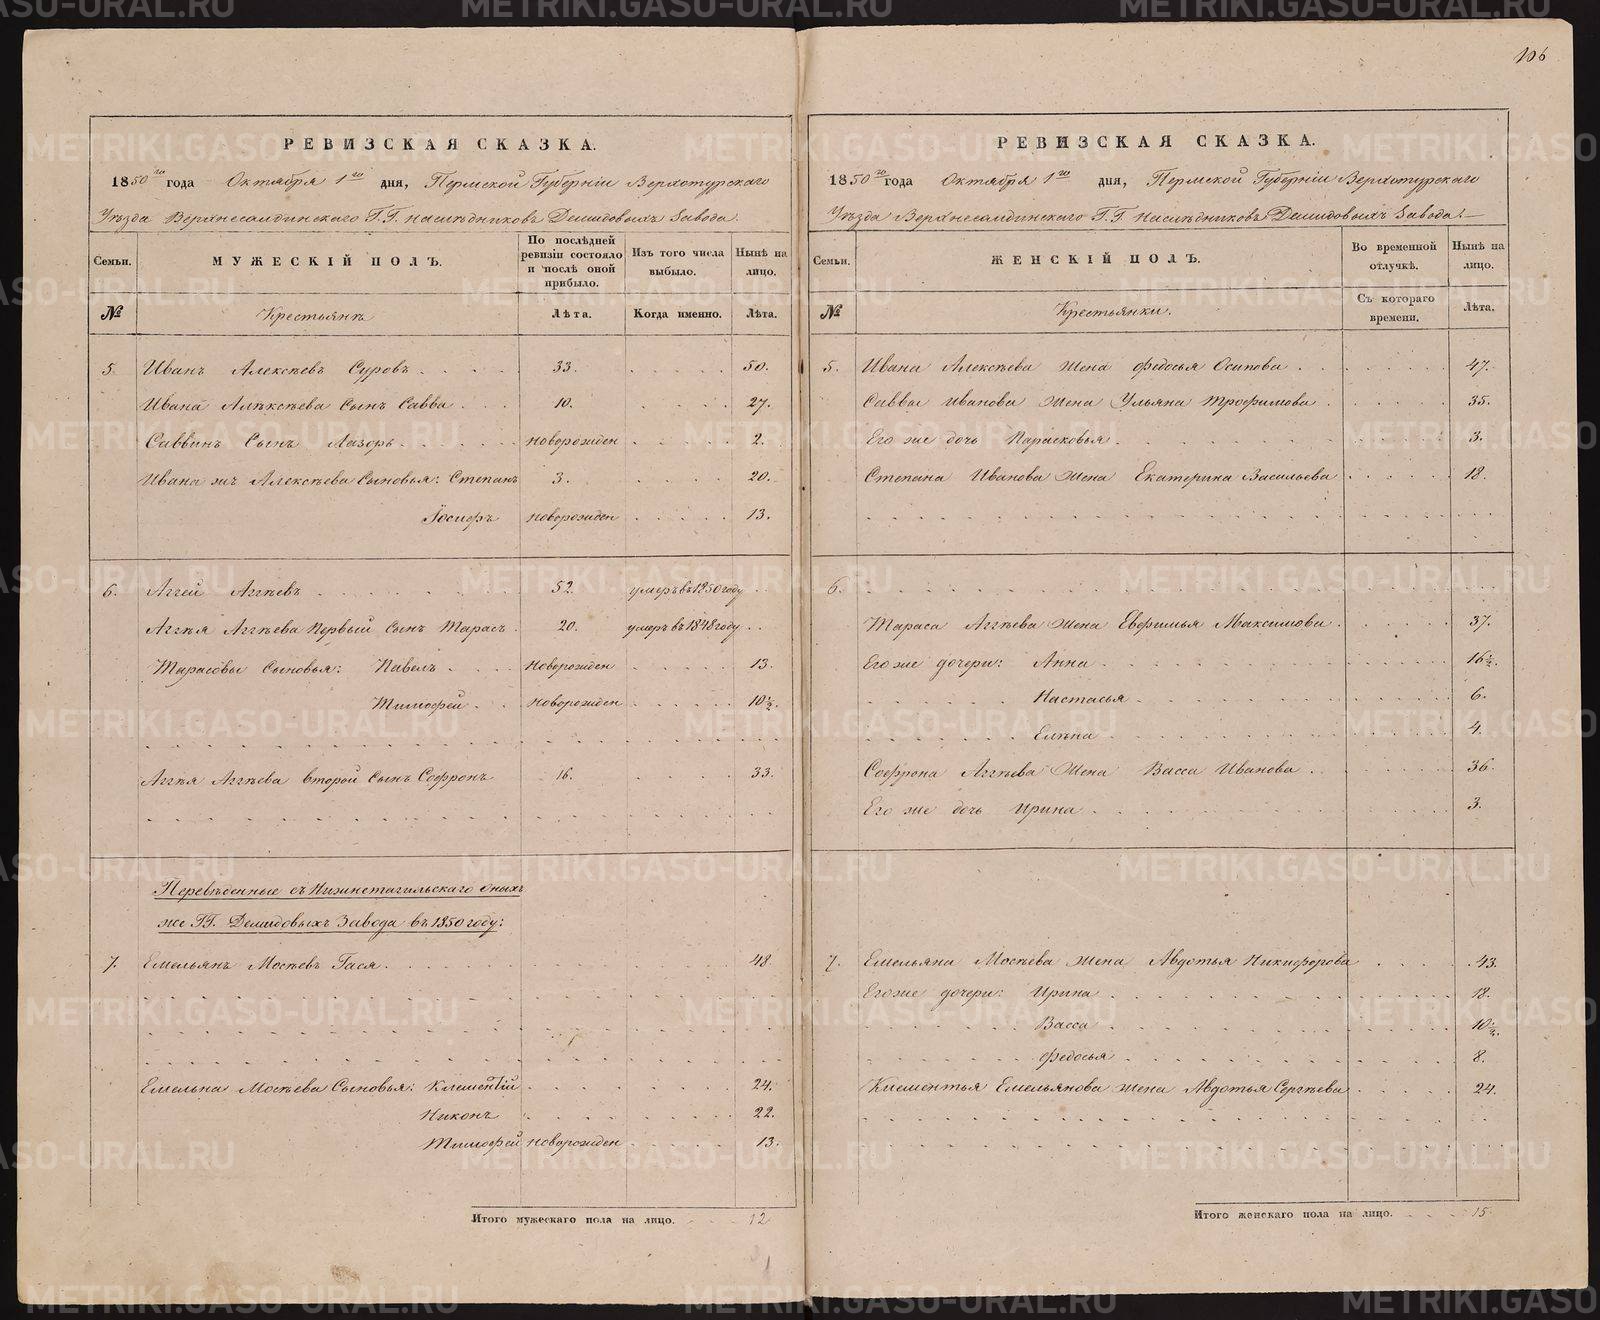 106
РЕВИЗСКАЯ СКАЗКА.
1850го года Октября 1го дня, Пермской Губерніи Верхотурскаго
Уѣзда Верхнесалдинскаго Г.Г. наслѣдниковъ Демидовыхъ Завода.
Семьи.
МУЖЕСКІЙ ПОЛЪ.
По послѣдней ревизіи состояло и послѣ оной прибыло.
Изъ того числа выбыло.
Нынѣ на лицо.
№
Крестьянъ
Лѣта.
Когда именно.
Лѣта.
5. Иванъ Алексѣевъ Суровъ 33. 50.
Ивана Алексѣева Сынъ Савва 10. 27.
Саввинъ Сынъ Лазорь новорожден 2.
Ивана же Алексѣева Сыновья: Степанъ 3. 20.
Іосифъ новорожден 13.
6. Аггей Аггѣевъ 52. умеръ въ 1850 году
Аггѣя Аггѣева Первый Сынъ Тарасъ 20. умеръ въ 1848 году
Тарасовы Сыновья: Павелъ Новорожден 13.
Тимофей Новорожден 10½.
Аггѣя Аггѣева второй Сынъ Софронъ 16. 33.
Перевѣденные съ Нижнетагильскаго оныхъ
же Г.Г. Демидовыхъ Завода въ 1850 году:
7. Емельянъ Мосѣевъ Гася 48
Емельна Мосѣева Сыновья: Клементій 24.
Никонъ 22.
Тимофей новорожден 13.
Итого мужескаго пола на лицо. 12
РЕВИЗСКАЯ СКАЗКА.
1850го года Октября 1го дня, Пермской Губерніи Верхотурскаго
Уѣзда Верхнесалдинскаго Г.Г. наслѣдниковъ Демидовыхъ Завода.
Семьи.
ЖЕНСКІЙ ПОЛЪ.
Во временной отлучкѣ.
Нынѣ на лицо.
№
Крестьянки.
Съ котораго времени.
Лѣта.
5. Ивана Алексѣева жена Федосья Осипова 47.
Саввы Иванова жена Ульяна Трофимова 35.
Его же дочь Парасковья 3.
Степана Иванова жена Екатерина Васильева 18.
6.
Тараса Аггѣева жена Евфимья Максимова 37.
Его же дочери: Анна 16½.
Настасья 6.
Елѣна 4.
Софрона Аггѣева жена Васса Иванова 36.
Его же дочь Ирина 3.
7. Емельяна Мосѣева жена Авдотья Никифорова 43.
Его же дочери: Ирина 18.
Васса 10½.
Федосья 8.
Климентья Емельянова жена Авдотья Сергѣева 24.
Итого женскаго пола на лицо. 15.
METRIKI.GASO-URAL.RU